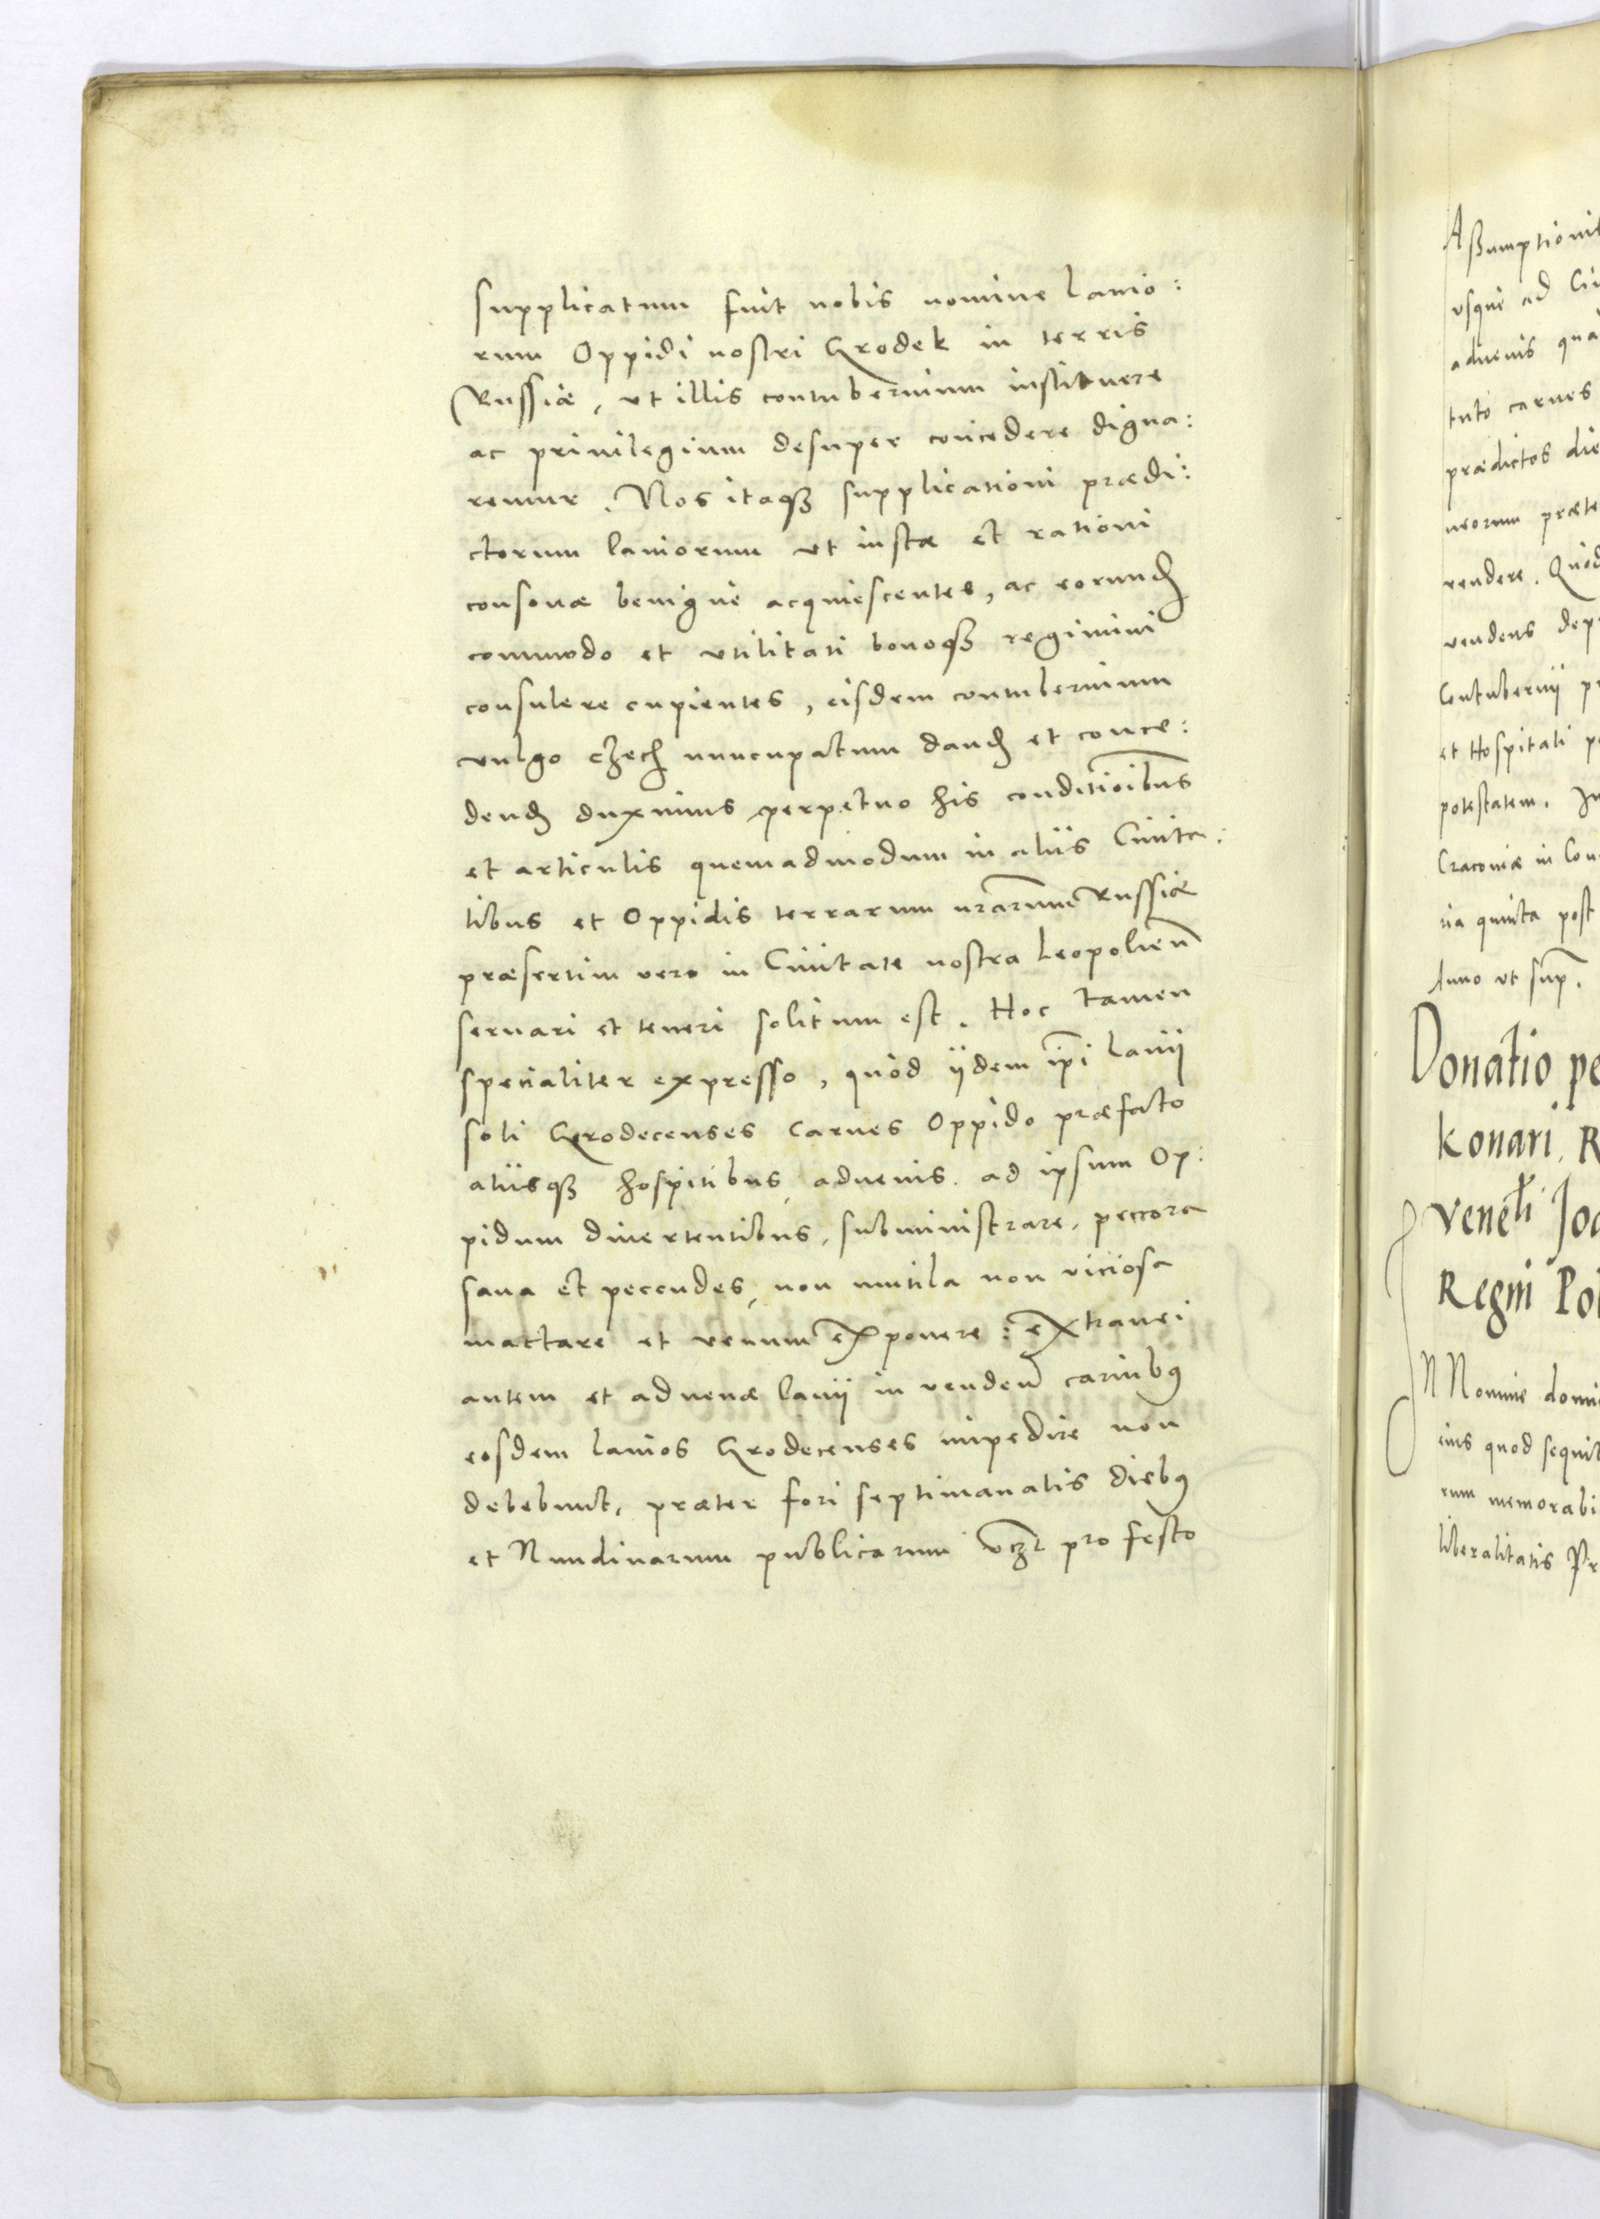 supplicatum fuit nobis nomine lanio:
rum Oppidi nostri Grodek in terris
Russiæ, ut illis contubernium instituere
ac priuilegium desuper concedere digna:
remur. Nos itaqȝ supplicationi prædi:
ctorum laniorum ut iustæ et rationi
consonæ benigne acquiescentes, ac eorund
commodo et utilitati bonoqȝ regimini
consulere cupientes, eisdem contubernium
vulgo czech nuncupatum dand et conce:
dend duximus perpetuo his conditioibus
et articulis quemadmodum in aliis Ciuita:
tibus et Oppidis terrarum nrarum Russiæ
præsertim vero in Ciuitate nostra Leopolien
seruari et teneri solitum est. Hoc tamen
specialiter expresso, quòd ijdem ipi lanij
soli Grodecenses Carnes Oppido præfato
aliisqȝ hospitibus aduenis ad ipsum Op:
pidum diuertentibus, subministrare, peccora
sana et peccudes, non mutila non viciosa
mactare et venum exponere: extranei
autem et aduenæ lanij in venden carnibꝰ
eosdem lanios Grodecenses impedire non
debebunt, præter fori septimanalis diebꝰ
et Nundinarum publicarum vczt pro festo
Assumptionis
vsque ad
aduenis
tuto carnes
prædictos
præte
uendere. Quod
vendens
Contubernij
et Hospitali
potestatem.
Cracouiæ in
ria quinta post
Anno ut sup.
Donatio
Konari.
Venebli
Regni
IN Nomine
eius quod
rum
liberalitatis